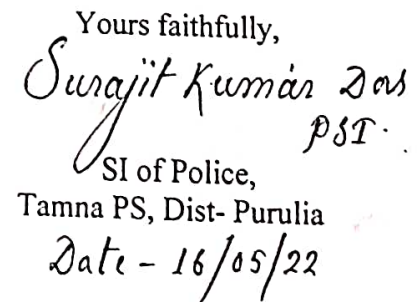 Yours faithfully,
Surajit Kumar Das
PSI.
SI of Police,
Tamna PS, Dist- Purulia
Date - 16/05/22